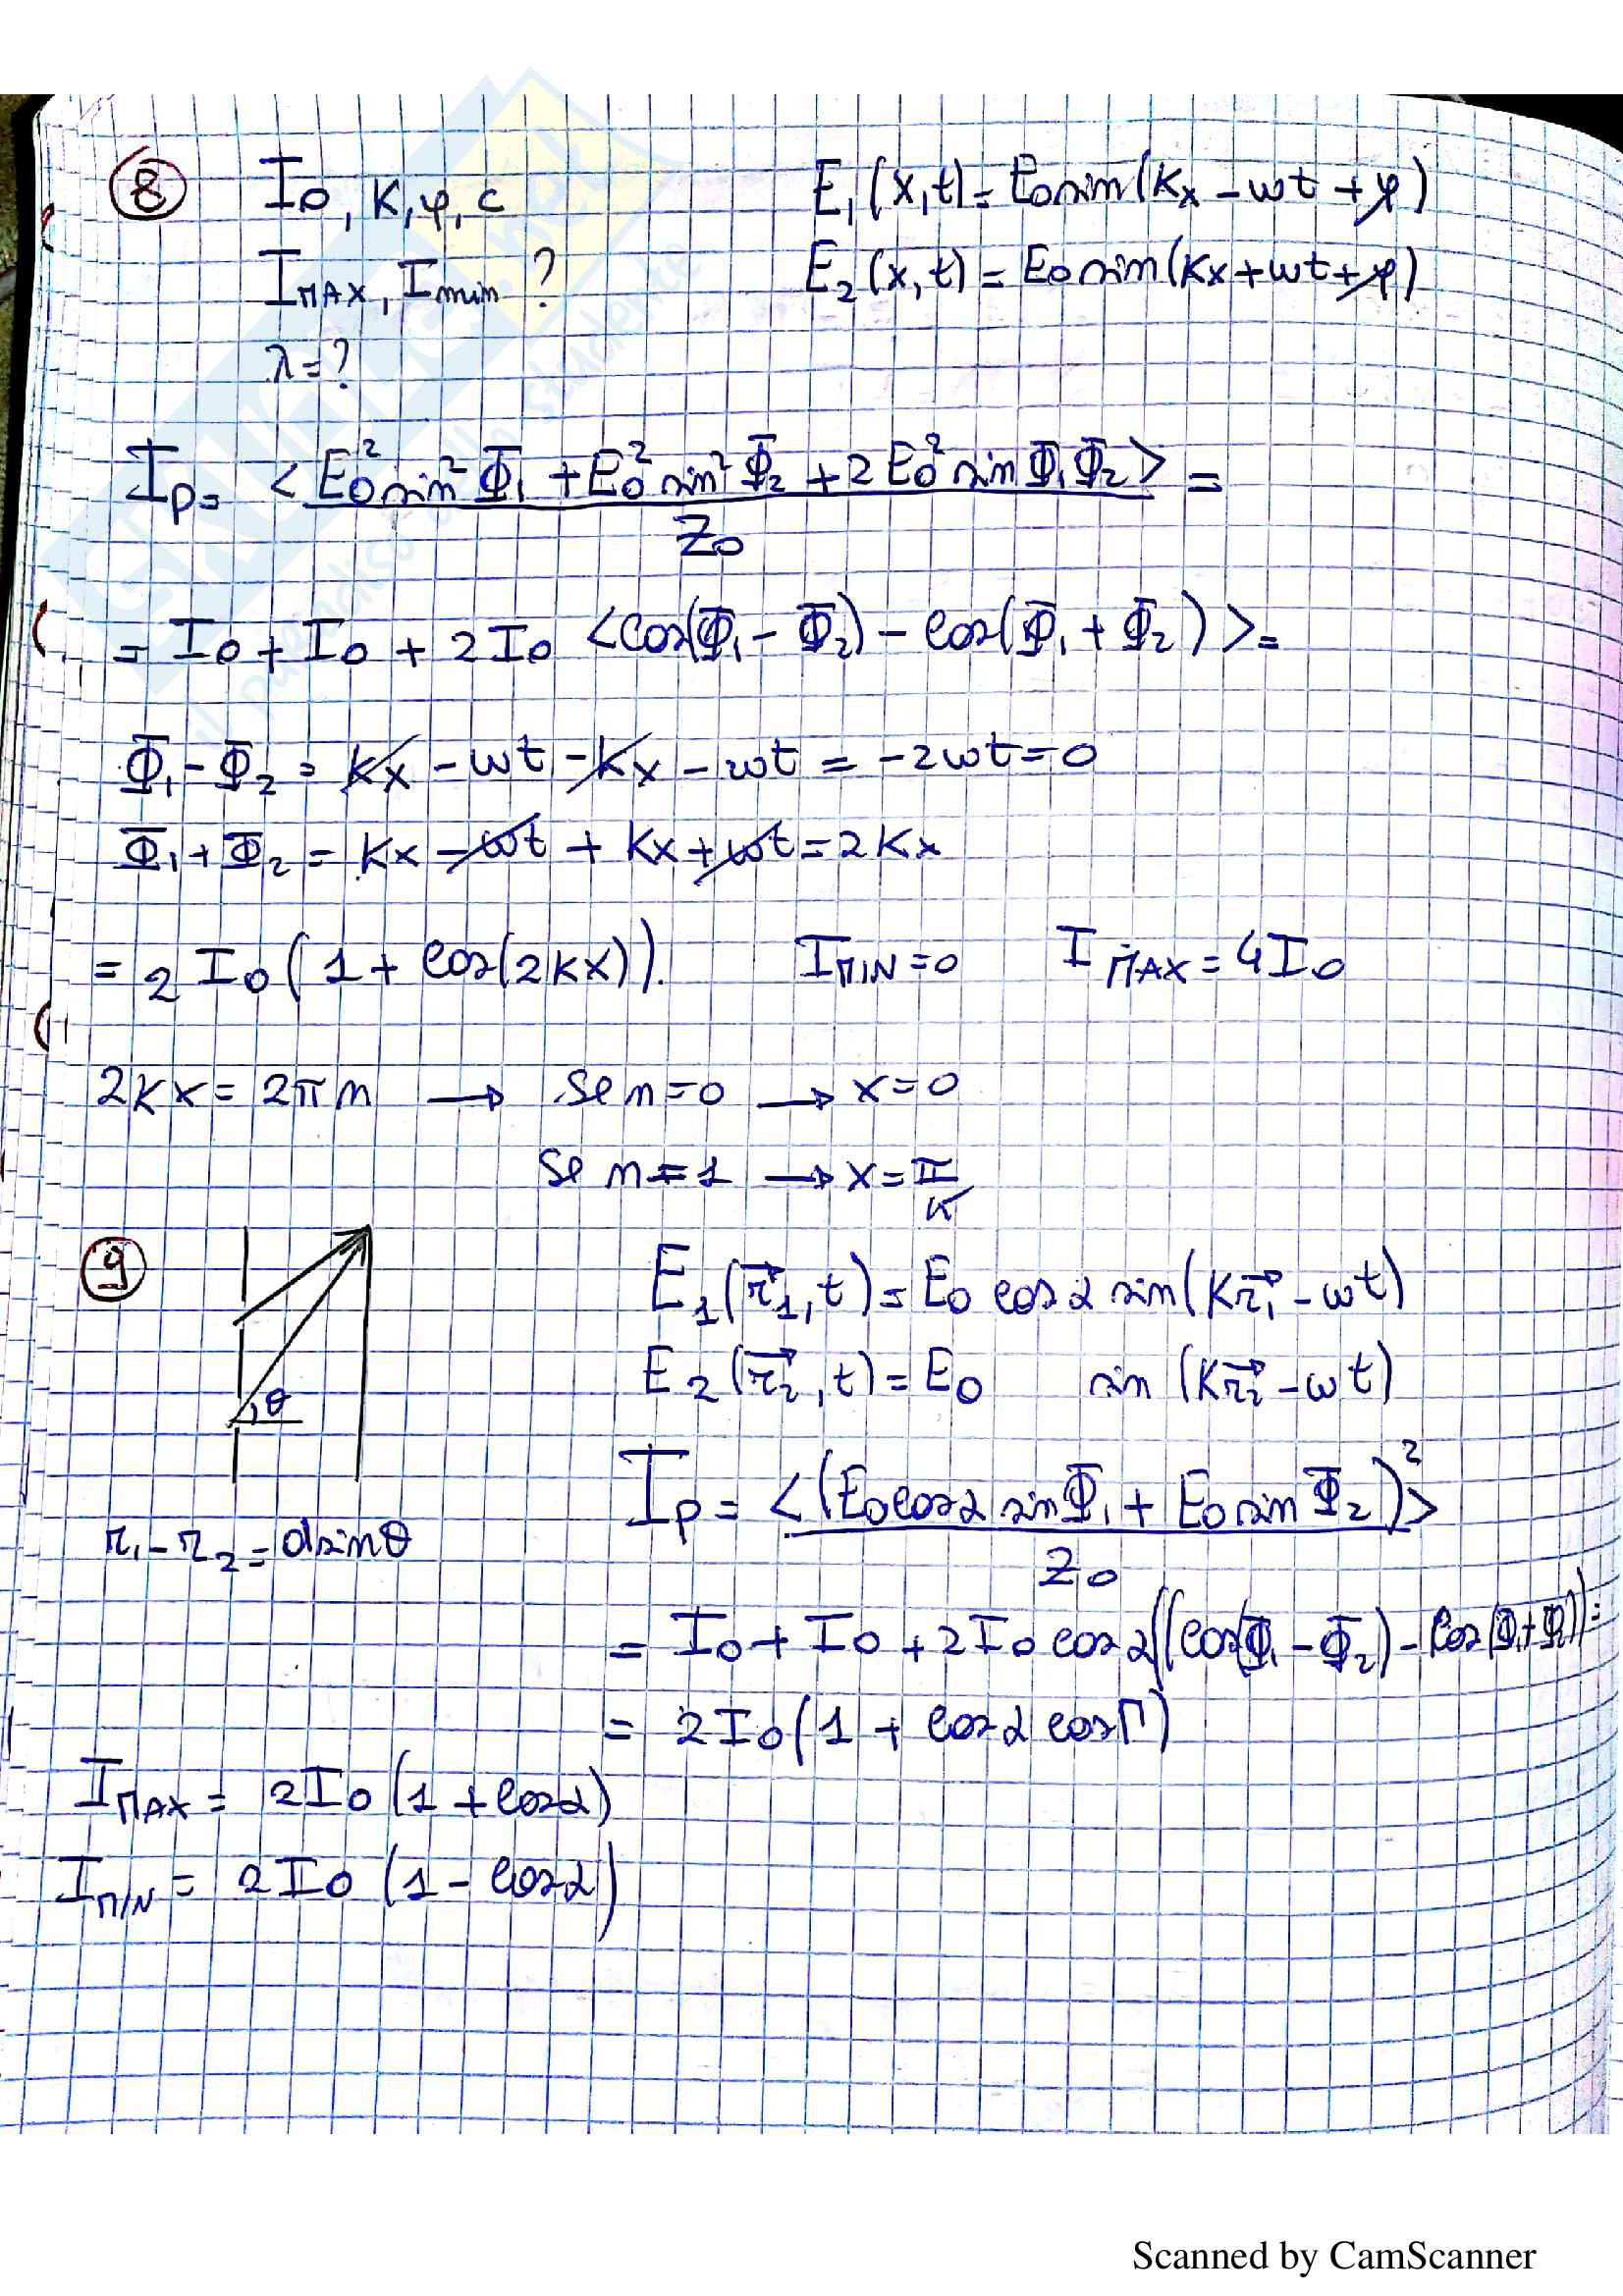 8 I₀, K, φ, c E₁(x,t) = E₀ sin(Kx − ωt + φ)
I_MAX, I_min ? E₂(x,t) = E₀ sin(Kx + ωt + φ)
λ = ?
I_p = <E₀² sin² Φ₁ + E₀² sin² Φ₂ + 2E₀² sin Φ₁ Φ₂> =
Z₀
= I₀ + I₀ + 2I₀ <cos(Φ₁ − Φ₂) − cos(Φ₁ + Φ₂)> =
Φ₁ − Φ₂ = Kx − ωt − Kx − ωt = −2ωt = 0
Φ₁ + Φ₂ = Kx − ωt + Kx + ωt = 2Kx
= 2I₀(1 + cos(2Kx)). I_MIN = 0 I_MAX = 4I₀
2Kx = 2πn → Se n = 0 → x = 0
Se n = 1 → x = π/K
9 E₁(r⃗₁,t) = E₀ cos α sin(K r⃗₁ − ωt)
θ E₂(r⃗₂,t) = E₀ sin(K r⃗₂ − ωt)
I_p = <(E₀ cos α sin Φ₁ + E₀ sin Φ₂)²>
r₁ − r₂ = d sin θ Z₀
= I₀ + I₀ + 2I₀ cos α((cos(Φ₁ − Φ₂) − cos(Φ₁ + Φ₂)) =
= 2I₀(1 + cos α cos Γ)
I_MAX = 2I₀(1 + cos α)
I_MIN = 2I₀(1 − cos α)
Scanned by CamScanner